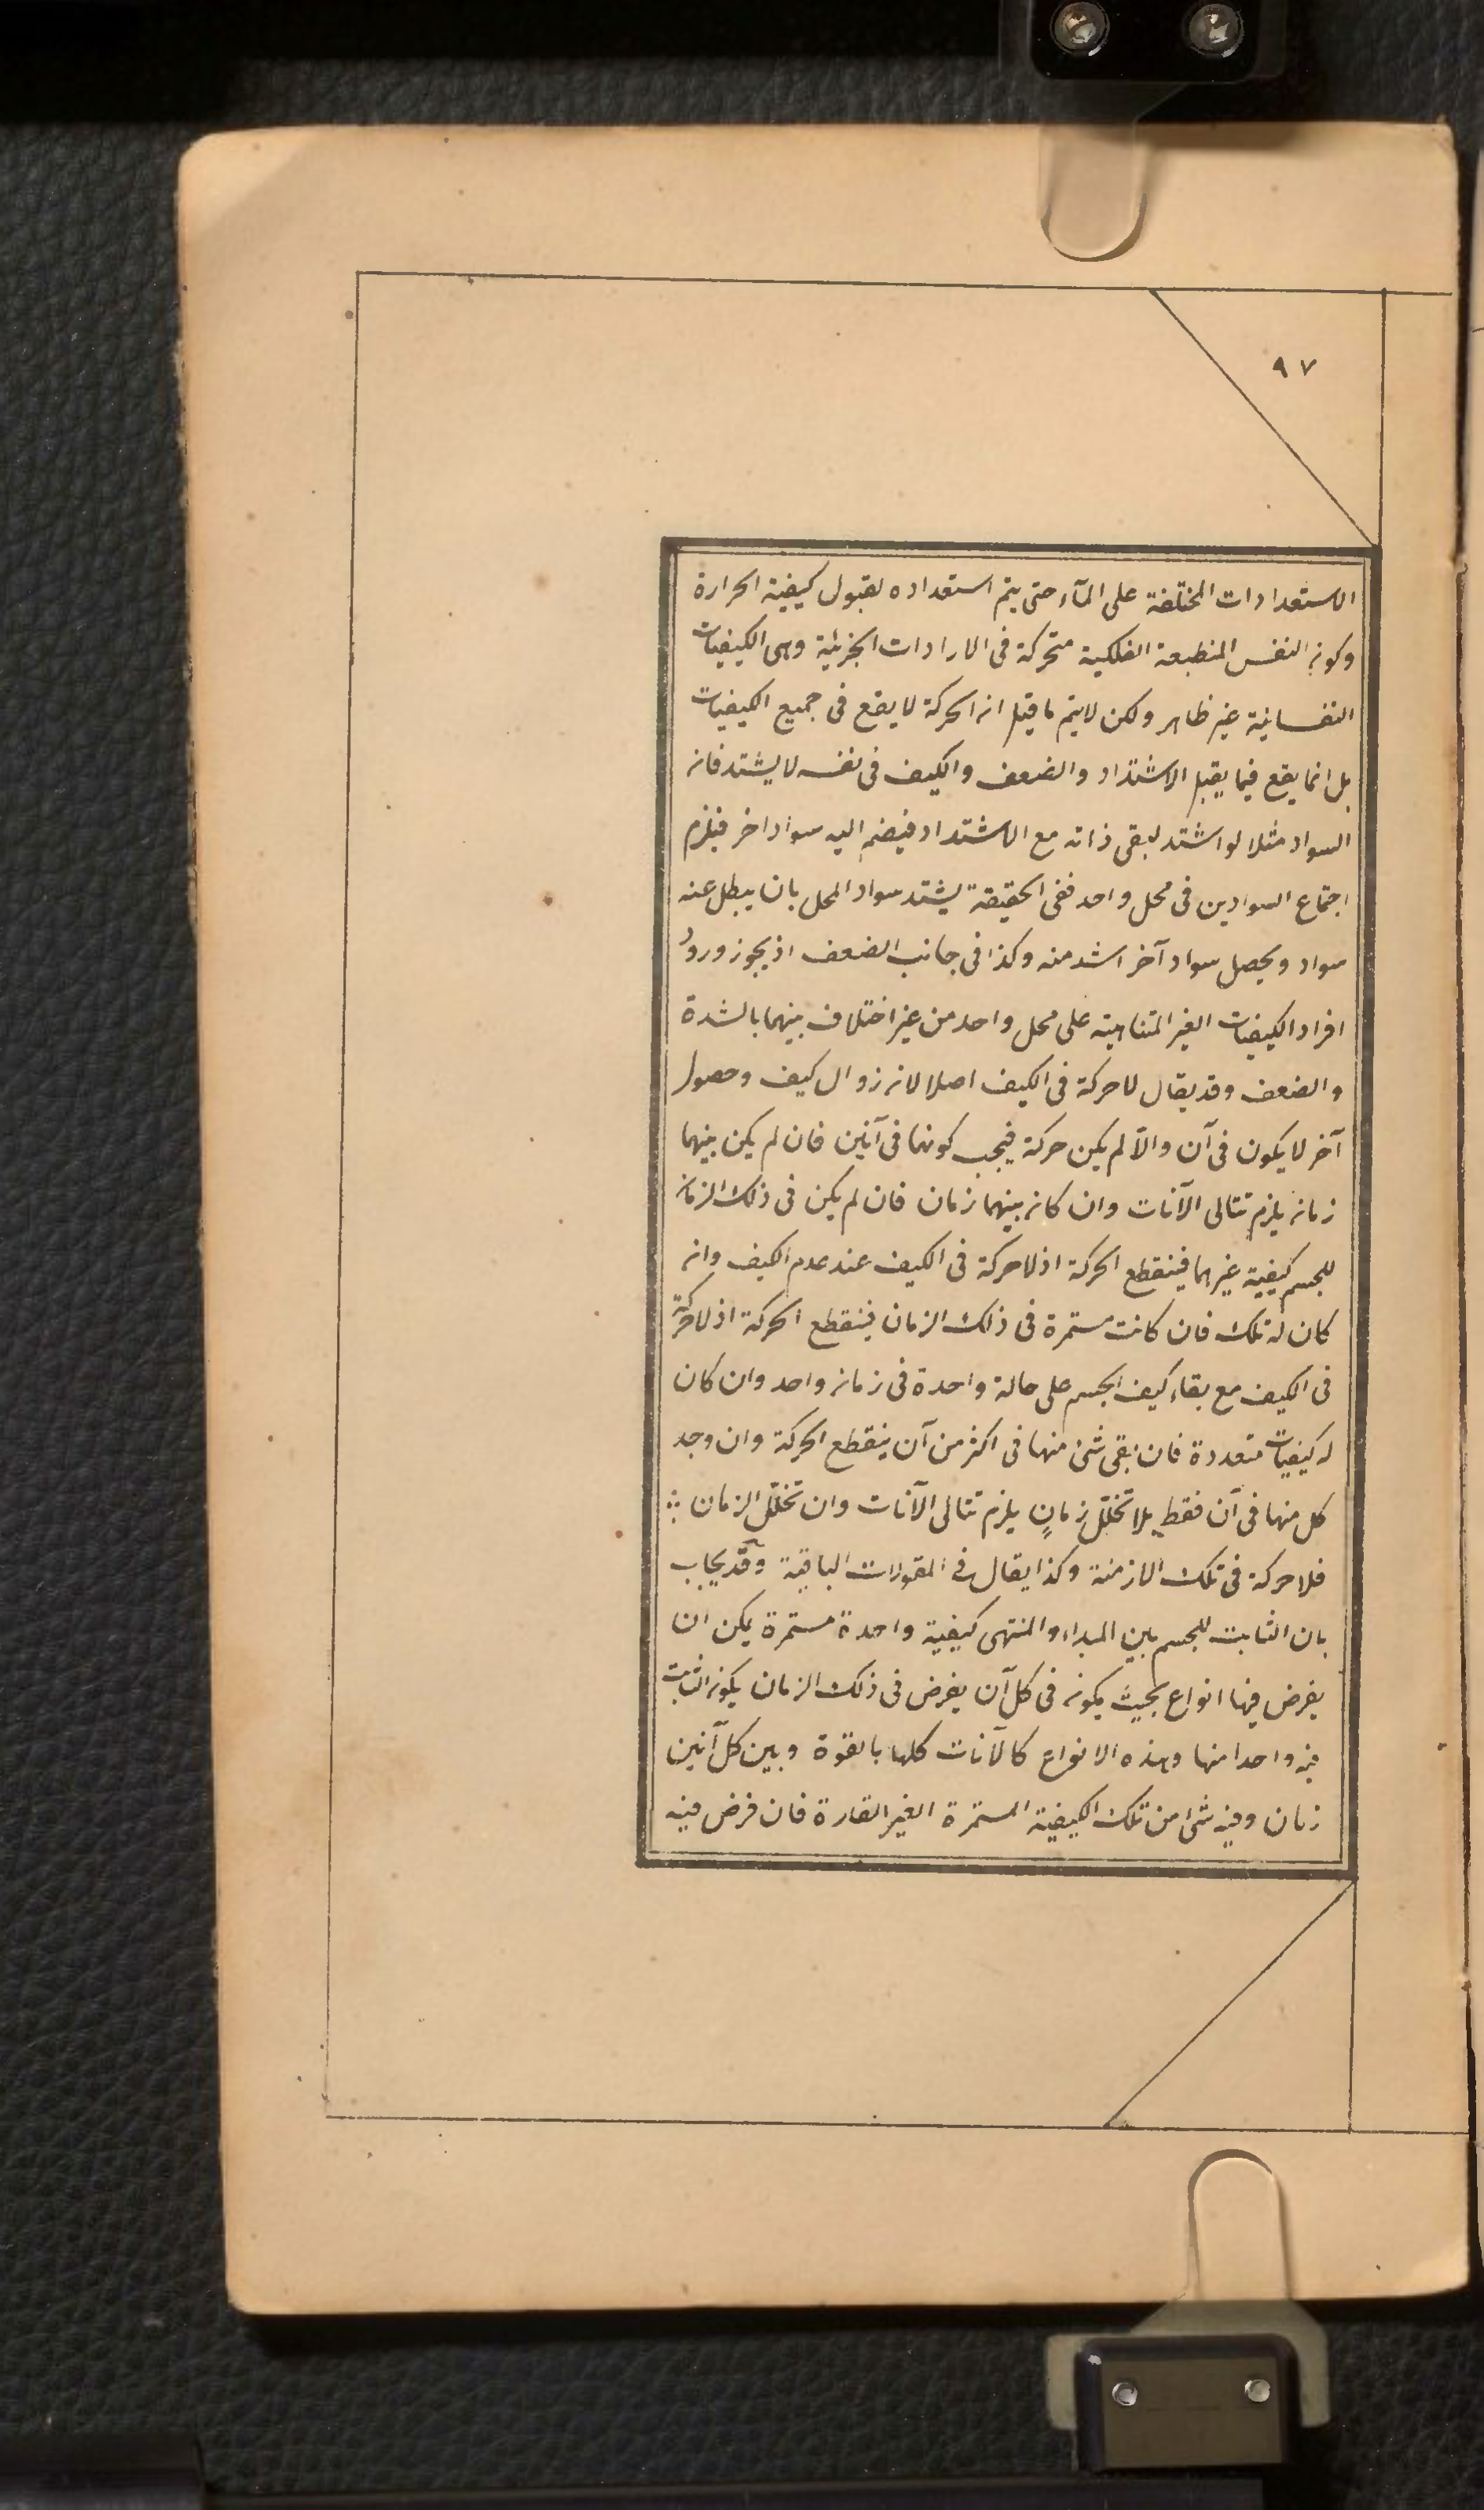 ٩٧
الاستعدادات المختلفة على المآء حتى يتم استعداده لقبول كيفية الحرارة
وكون النفس المنطبعة الفلكية متحركة فى الارادات الجزئية وهى الكيفيات
النفسانية غير ظاهر ولكن لا يتم ما قيل ان الحركة لا يقع فى جميع الكيفيات
بل انما يقع فيما يقبل الاشتداد والضعف والكيف فى نفسه لا يشتد فان
السواد مثلا لو اشتد لبقى ذاته مع الاشتداد فينضم اليه سواد اخر فيلزم
اجتماع السوادين فى محل واحد ففى الحقيقة يشتد سواد المحل بان يبطل عنه
سواد ويحصل سواد آخر اشد منه وكذا فى جانب الضعف اذ يجوز ورود
افراد الكيفيات الغير المتناهية على محل واحد من غير اختلاف بينهما بالشدة
والضعف وقد يقال لا حركة فى الكيف اصلا لان زوال كيف وحصول
آخر لا يكون فى آن والّا لم يكن حركة فيجب كونهما فى آنين فان لم يكن بينهما
زمان يلزم تتالى الآنات وان كان بينهما زمان فان لم يكن فى ذلك الزمان
للجسم كيفية غيرهما فينقطع الحركة اذ لا حركة فى الكيف عند عدم الكيف وان
كان له تلك فان كانت مستمرة فى ذلك الزمان فينقطع الحركة اذ لا حركة
فى الكيف مع بقاء كيف الجسم على حالة واحدة فى زمان واحد وان كان
له كيفيات متعددة فان بقى شئ منها فى اكثر من آن ينقطع الحركة وان وجد
كل منها فى آن فقط بلا تخلّل زمانٍ يلزم تتالى الآنات وان تخلّل الزمان ∴
فلا حركة فى تلك الازمنة وكذا يقال فى المقولات الباقية وقد يجاب
بان الثابت للجسم بين المبداء والمنتهى كيفية واحدة مستمرة يكن ان
يفرض فيها انواع بحيث يكون فى كل آن يفرض فى ذلك الزمان يكون الثابت
فيه واحدا منها وهذه الانواع كالآنات كلها بالقوة وبين كل آنين
زمان وفيه شئ من تلك الكيفية المستمرة الغير القارة فان فرض فيه